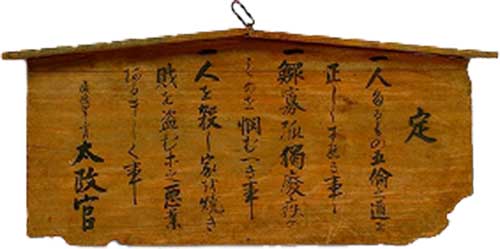 定
一人たるもの五倫之道を
正しくすへき事
一鰥寡孤獨廢疾の
ものを憫むへき事
一人を殺し家を焼き
財を盗む等之惡業
あるましく事
太政官